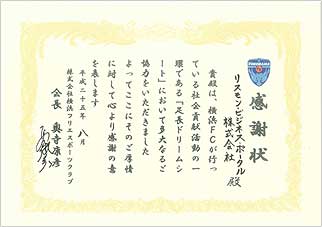 感謝状
リスモン・ビジネス・ポータル
株式会社 殿
貴殿は、横浜FCが行っ
ている社会貢献活動の一
環である『足長ドリームシ
ート』において多大なるご
協力をいただきました
よってここにそのご厚情
に対して心より感謝の意
を表します
平成二十五年 八月
株式会社横浜フリエスポーツクラブ
会長 奥寺康彦